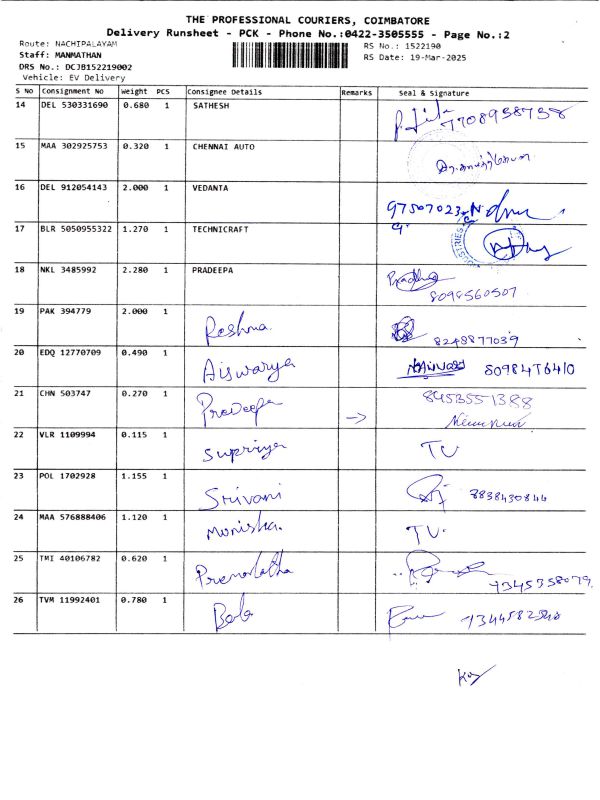 THE PROFESSIONAL COURIERS, COIMBATORE
Delivery Runsheet - PCK - Phone No.:0422-3505555 - Page No.:2
Route: NACHIPALAYAM
RS No.: 1522190
Staff: MANMATHAN
RS Date: 19-Mar-2025
DRS No.: DCJB152219002
Vehicle: EV Delivery
S No Consignment No Weight PCS Consignee Details Remarks Seal & Signature
14 DEL 530331690 0.680 1 SATHESH 7708938738
15 MAA 302925753 0.320 1 CHENNAI AUTO
16 DEL 912054143 2.000 1 VEDANTA
17 BLR 5050955322 1.270 1 TECHNICRAFT
18 NKL 3485992 2.280 1 PRADEEPA
8098560507
19 PAK 394779 2.000 1 Reshma 8248877039
20 EDQ 12770709 0.490 1 Aiswarya 8098476410
21 CHN 503747 0.270 1 Pradeepa 8453551388
22 VLR 1109994 0.115 1 Supriya TV
23 POL 1702928 1.155 1 Srivani 8838430844
24 MAA 576888406 1.120 1 Monisha. TV.
25 TMI 40106782 0.620 1 Premalatha 9345358079
26 TVM 11992401 0.780 1 Bala